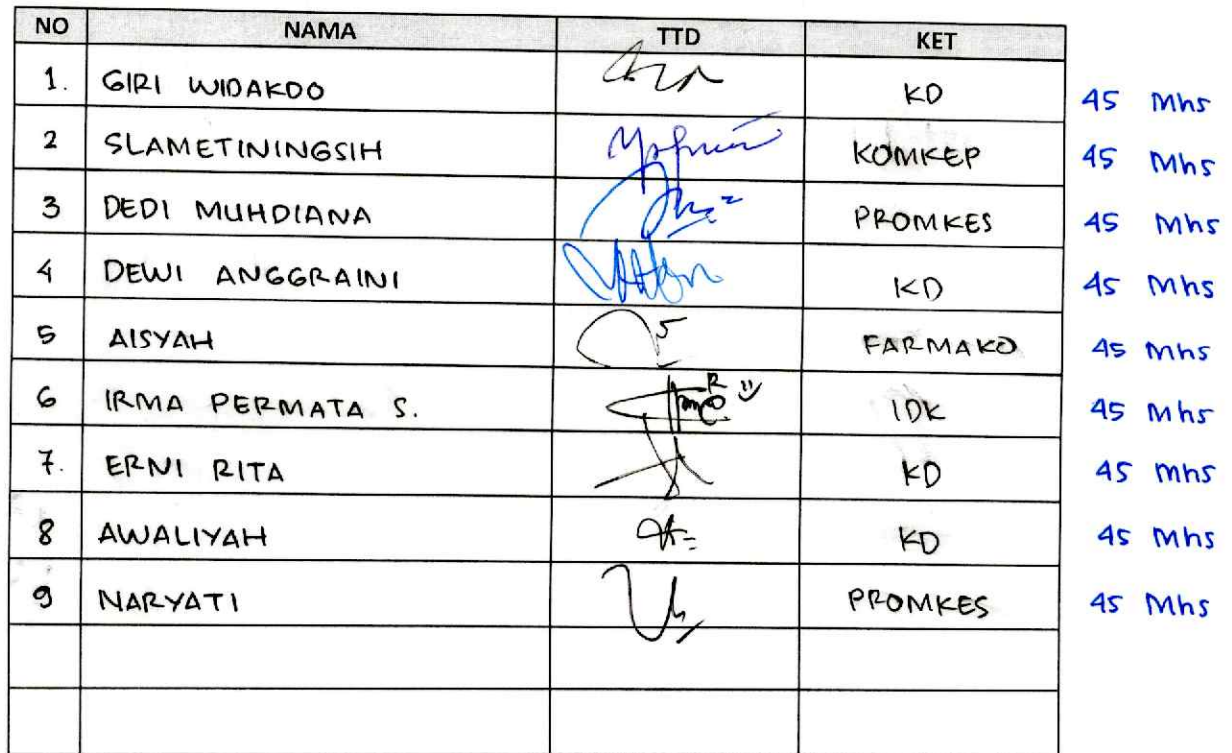 NO NAMA TTD KET
1. GIRI WIDAKDO KD 45 Mhs
2 SLAMETININGSIH KOMKEP 45 Mhs
3 DEDI MUHDIANA PROMKES 45 Mhs
4 DEWI ANGGRAINI KD 45 Mhs
5 AISYAH FARMAKO 45 Mhs
6 IRMA PERMATA S. IDK 45 Mhs
7. ERNI RITA KD 45 Mhs
8 AWALIYAH KD 45 Mhs
9 NARYATI PROMKES 45 Mhs